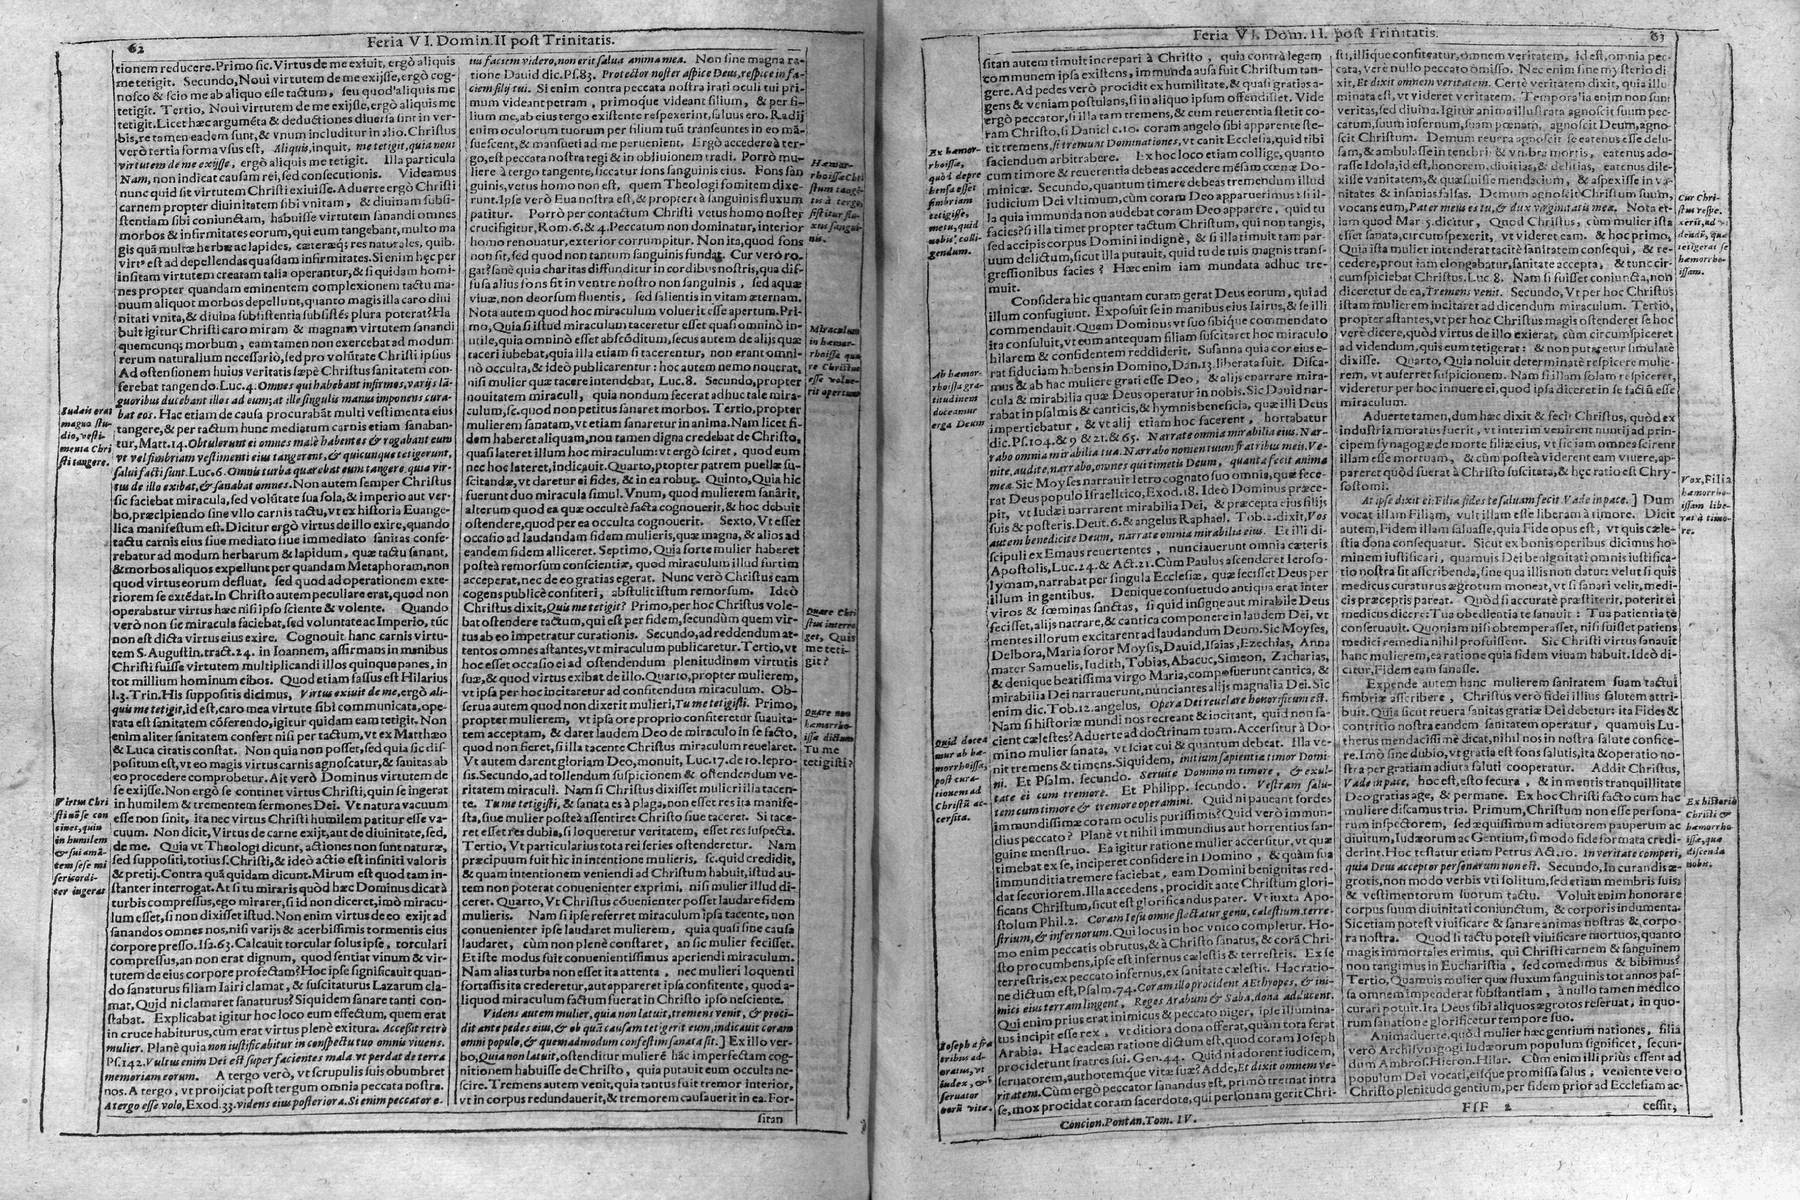 62
Feria VI. Domin. II post Trinitatis.
tionem reducere. Primo sic. Virtus de me exiuit, ergò aliquis
me tetigit. Secundo, Noui virtutem de me exijsse, ergò cog-
nosco & scio me ab aliquo esse tactum, seu quod aliquis me
tetigit. Tertio, Noui virtutem de me exijsse, ergò aliquis me
tetigit. Licet hæc argumēta & deductiones diuersa sint in ver-
bis, re tamen eadem sunt, & vnum includitur in alio. Christus
verò tertia forma vsus est, Aliquis, inquit, me tetigit, quia noui
virtutem de me exijsse, ergò aliquis me tetigit. Illa particula
Nam, non indicat causam rei, sed consecutionis. Videamus
nunc quid sit virtutem Christi exiuisse. Aduerte ergò Christi
carnem propter diuinitatem sibi vnitam, & diuinam subsi-
stentiam sibi coniunctam, habuisse virtutem sanandi omnes
morbos & infirmitates eorum, qui eum tangebant, multo ma
gis quā multæ herbæ ac lapides, cæteræq́; res naturales, quib.
virt' est ad depellendas quasdam infirmitates. Si enim hęc per
insitam virtutem creatam talia operantur, & si quidam homi-
nes propter quandam eminentem complexionem tactu ma-
nuum aliquot morbos depellunt, quanto magis illa caro diui
nitati vnita, & diuina subsistentia subsistēs plura poterat? Ha
buit igitur Christi caro miram & magnam virtutem sanandi
quemcunq; morbum, eam tamen non exercebat ad modum
rerum naturalium necessariò, sed pro volūtate Christi ipsius
Ad ostensionem huius veritatis sæpè Christus sanitatem con-
ferebat tangendo. Luc. 4. Omnes qui habebant infirmos, varijs lā-
guoribus ducebant illos ad eum; at ille singulis manus imponens cura-
bat eos. Hac etiam de causa procurabāt multi vestimenta eius
tangere, & per tactum hunc mediatum carnis etiam sanaban-
tur, Matt. 14. Obtulerunt ei omnes malè habentes & rogabant eum
vt vel fimbriam vestimenti eius tangerent, & quicunque tetigerunt,
salui facti sunt. Luc. 6. Omnis turba quærebat eum tangere, quia vir-
tus de illo exibat, & sanabat omnes. Non autem semper Christus
sic faciebat miracula, sed volūtate sua sola, & imperio aut ver-
bo, præcipiendo sine vllo carnis tactu, vt ex historia Euange-
lica manifestum est. Dicitur ergò virtus de illo exire, quando
tactu carnis eius siue mediato siue immediato sanitas confe-
rebatur ad modum herbarum & lapidum, quæ tactu sanant,
& morbos aliquos expellunt per quandam Metaphoram, non
quod virtus eorum defluat, sed quod ad operationem exte-
riorem se extēdat. In Christo autem peculiare erat, quod non
operabatur virtus hæc nisi ipso sciente & volente. Quando
verò non sic miracula faciebat, sed voluntate ac Imperio, tūc
non est dicta virtus eius exire. Cognouit hanc carnis virtu-
tem S. Augustin. tract. 24. in Ioannem, affirmans in manibus
Christi fuisse virtutem multiplicandi illos quinque panes, in
tot millium hominum cibos. Quod etiam fassus est Hilarius
l. 3. Trin. His suppositis dicimus, Virtus exiuit de me, ergò ali-
quis me tetigit, id est, caro mea virtute sibi communicata, ope-
rata est sanitatem cōferendo, igitur quidam eam tetigit. Non
enim aliter sanitatem confert nisi per tactum, vt ex Matthæo
& Luca citatis constat. Non quia non posset, sed quia sic dis-
positum est, vt eo magis virtus carnis agnoscatur, & sanitas ab
eo procedere comprobetur. Ait verò Dominus virtutem de
se exijsse. Non ergò se continet virtus Christi, quin se ingerat
in humilem & trementem sermones Dei. Vt natura vacuum
esse non sinit, ita nec virtus Christi humilem patitur esse va-
cuum. Non dicit, Virtus de carne exijt, aut de diuinitate, sed,
de me. Quia vt Theologi dicunt, actiones non sunt naturæ,
sed suppositi, totius s. Christi, & ideò actio est infiniti valoris
& pretij. Contra quā quidam dicunt. Mirum est quod tam in-
stanter interrogat. At si tu miraris quòd hæc Dominus dicat à
turbis compressus, ego mirarer, si id non diceret, imò miracu-
lum esset, si non dixisset istud. Non enim virtus de eo exijt ad
sanandos omnes nos, nisi varijs & acerbissimis tormentis eius
corpore presso. Isa. 63. Calcauit torcular solus ipse, torculari
compressus, an non erat dignum, quod sentiat vinum & vir-
tutem de eius corpore profectam? Hoc ipse significauit quan-
do sanaturus filiam Iairi clamat, & suscitaturus Lazarum cla-
mat. Quid ni clamaret sanaturus? Siquidem sanare tanti con-
stabat. Explicabat igitur hoc loco eum effectum, quem erat
in cruce habiturus, cùm erat virtus plenè exitura. Accessit retrò
mulier. Planè quia non iustificabitur in conspectu tuo omnis viuens.
Ps. 142. Vultus enim Dei est super facientes mala, vt perdat de terra
memoriam eorum. A tergo verò, vt scrupulis suis obumbret
nos. A tergo, vt proijciat post tergum omnia peccata nostra.
A tergo esse volo, Exod. 33. videns eius posteriora. Si enim peccator e-
Iudæis erat
magno stu-
dio, vesti-
menta Chri
sti tangere.
Virtus Chri
sti nō se con
tinet, quin
in humilem
& sui amā-
tem sese mi
sericordi-
ter ingerat
ius faciem videro, non erit salua anima mea. Non sine magna ra-
tione Dauid dic. Ps. 83. Protector noster aspice Deus, respice in fa-
ciem filij tui. Si enim contra peccata nostra irati oculi tui pri-
mum videant petram, primoque videant filium, & per fi-
lium me, ab eius tergo existente respexerint, saluus ero. Radij
enim oculorum tuorum per filium tuū transeuntes in eo mā-
suescent, & mansueti ad me peruenient. Ergò accedere à ter-
go, est peccata nostra tegi & in obliuionem tradi. Porrò mu-
liere à tergo tangente, siccatur fons sanguinis eius. Fons san
guinis, vetus homo non est, quem Theologi fomitem dixe-
runt. Ipse verò Eua nostra est, & propter à sanguinis fluxum
patitur. Porrò per contactum Christi vetus homo noster
crucifigitur, Rom. 6. & 4. Peccatum non dominatur, interior
homo renouatur, exterior corrumpitur. Non ita, quod fons
non sit, sed quod non tantum sanguinis fundat. Cur verò ro-
gat? sanè quia charitas diffunditur in cordibus nostris, qua dif-
fusa alius fons fit in ventre nostro non sanguinis, sed aquæ
viuæ, non deorsum fluentis, sed salientis in vitam æternam.
Nota autem quod hoc miraculum voluerit esse apertum. Pri-
mo, Quia si istud miraculum taceretur esset quasi omninò in-
utile, quia omninò esset abscōditum, secus autem de alijs quæ
taceri iubebat, quia illa etiam si tacerentur, non erant omni-
nò occulta, & ideò publicarentur: hoc autem nemo nouerat,
nisi mulier quæ tacere intendebat, Luc. 8. Secundo, propter
nouitatem miraculi, quia nondum fecerat adhuc tale mira-
culum, sc. quod non petitus sanaret morbos. Tertio, propter
mulierem sanatam, vt etiam sanaretur in anima. Nam licet fi-
dem haberet aliquam, non tamen digna credebat de Christo,
quasi lateret illum hoc miraculum: vt ergò sciret, quod eum
nec hoc lateret, indicauit. Quarto, propter patrem puellæ su-
scitandæ, vt daretur ei fides, & in ea robur. Quinto, Quia hic
fuerunt duo miracula simul. Vnum, quod mulierem sanârit,
alterum quod ea quæ occultè facta cognouerit, & hoc debuit
ostendere, quod per ea occulta cognouerit. Sexto, Vt esset
occasio ad laudandam fidem mulieris, quæ magna, & alios ad
eandem fidem alliceret. Septimo, Quia forte mulier haberet
posteà remorsum conscientiæ, quod miraculum illud furtim
acceperat, nec de eo gratias egerat. Nunc verò Christus eam
cogens publicè confiteri, abstulit istum remorsum. Ideò
Christus dixit, Quis me tetigit? Primo, per hoc Christus vole-
bat ostendere tactum, qui est per fidem, secundùm quem vir-
tus ab eo impetratur curationis. Secundo, ad reddendum at-
tentos omnes astantes, vt miraculum publicaretur. Tertio, vt
hoc esset occasio ei ad ostendendum plenitudinem virtutis
suæ, & quod virtus exibat de illo. Quarto, propter mulierem,
vt ipsa per hoc incitaretur ad confitendum miraculum. Ob-
serua autem quod non dixerit mulieri, Tu me tetigisti. Primo,
propter mulierem, vt ipsa ore proprio confiteretur suauita-
tem acceptam, & daret laudem Deo de miraculo in se facto,
quod non fieret, si illa tacente Christus miraculum reuelaret.
Vt autem darent gloriam Deo, monuit, Luc. 17. de 10. lepro-
sis. Secundo, ad tollendum suspicionem & ostendendum ve-
ritatem miraculi. Nam si Christus dixisset mulieri illa tacen-
te. Tu me tetigisti, & sanata es à plaga, non esset res ita manife-
sta, siue mulier posteà assentiret Christo siue taceret. Si tace-
ret esset res dubia, si loqueretur veritatem, esset res suspecta.
Tertio, Vt particularius tota rei series ostenderetur. Nam
præcipuum fuit hic in intentione mulieris, sc. quod credidit,
& quam intentionem veniendi ad Christum habuit, istud au-
tem non poterat conuenienter exprimi, nisi mulier illud di-
ceret. Quarto, Vt Christus cōuenienter posset laudare fidem
mulieris. Nam si ipse referret miraculum ipsa tacente, non
conuenienter ipse laudaret mulierem, quia quasi sine causa
laudaret, cùm non plenè constaret, an sic mulier fecisset.
Et iste modus fuit conuenientissimus aperiendi miraculum.
Nam alias turba non esset ita attenta, nec mulieri loquenti
fortassis ita crederetur, aut appareret ipsa confitente, quod a-
liquod miraculum factum fuerat in Christo ipso nesciente.
Videns autem mulier, quia non latuit, tremens venit, & proci-
dit ante pedes eius, & ob quā causam tetigerit eum, indicauit coram
omni populo, & quemadmodum confestim sanata sit.] Ex illo ver-
bo, Quia non latuit, ostenditur mulierē hāc imperfectam cog-
nitionem habuisse de Christo, quia putauit eum occulta ne-
scire. Tremens autem venit, quia tantus fuit tremor interior,
vt in corpus redundauerit, & tremorem causauerit in ea. For-
sitan
Hæmor-
rhoissa Chri
stum tangē-
tis à tergo,
sistitur flu-
xus sangui-
nis.
Miraculum
in hæmor-
rhoissa qua
re Christus
esse volue-
rit apertum
Quare Chri
stus interro
get, Quis
me teti-
git?
Quare non
hæmorrho-
issæ dictum
Tu me
tetigisti?
Feria VI. Dom. II. post Trinitatis.
63
sitan autem timuit increpari à Christo, quia contra legem
communem ipsa existens, immunda ausa fuit Christum tan-
gere. Ad pedes verò procidit ex humilitate, & quasi gratias a-
gens & veniam postulans, si in aliquo ipsum offendisset. Vide
ergò peccator, si illa tam tremens, & cum reuerentia stetit co-
ram Christo, si Daniel c. 10. coram angelo sibi apparente ste-
tit tremens, si tremunt Dominationes, vt canit Ecclesia, quid tibi
faciendum arbitrabere. Ex hoc loco etiam collige, quanto
cum timore & reuerentia debeas accedere mēsam cœnæ Do-
minicæ. Secundo, quantum timere debeas tremendum illud
iudicium Dei vltimum, cùm coram Deo apparuerimus: si il-
la quia immunda non audebat coram Deo apparere, quid tu
facies? si illa timet propter tactum Christum, qui non tangis,
sed accipis corpus Domini indignè, & si illa timuit tam par-
uum delictum, sicut illa putauit, quid tu de tuis magnis trans-
gressionibus facies? Hæc enim iam mundata adhuc tre-
muit.
Considera hic quantam curam gerat Deus eorum, qui ad
illum confugiunt. Exposuit se in manibus eius Iairus, & se illi
commendauit. Quem Dominus vt suo sibique commendato
ita consuluit, vt eum antequam filiam suscitaret hoc miraculo
hilarem & confidentem reddiderit. Susanna quia cor eius e-
rat fiduciam habens in Domino, Dan. 13. liberata fuit. Disca-
mus & ab hac muliere grati esse Deo, & alijs enarrare mira-
cula & mirabilia quæ Deus operatur in nobis. Sic Dauid nar-
rabat in psalmis & canticis, & hymnis beneficia, quæ illi Deus
impertiebatur, & vt alij etiam hoc facerent, hortabatur
dic. Ps. 104. & 9 & 21. & 65. Narrate omnia mirabilia eius. Nar-
rabo omnia mirabilia tua. Narrabo nomen tuum fratribus meis. Ve-
nite, audite, narrabo, omnes qui timetis Deum, quanta fecit anima
mea. Sic Moyses narrauit Ietro cognato suo omnia, quæ fece-
rat Deus populo Israelitico, Exod. 18. Ideò Dominus præce-
pit, vt Iudæi narrarent mirabilia Dei, & præcepta eius filijs
suis & posteris. Deut. 6. & angelus Raphael. Tob. 2. dixit, Vos
autem benedicite Deum, narrate omnia mirabilia eius. Et illi di-
scipuli ex Emaus reuertentes, nunciauerunt omnia cæteris
Apostolis, Luc. 24. & Act. 21. Cùm Paulus ascenderet Ieroso-
lymam, narrabat per singula Ecclesiæ, quæ fecisset Deus per
illum in gentibus. Denique consuetudo antiqua erat inter
viros & fœminas sanctas, si quid insigne aut mirabile Deus
fecisset, alijs narrare, & cantica componere in laudem Dei, vt
mentes illorum excitarent ad laudandum Deum. Sic Moyses,
Delbora, Maria soror Moysis, Dauid, Isaias, Ezechias, Anna
mater Samuelis, Iudith, Tobias, Abacuc, Simeon, Zacharias,
& denique beatissima virgo Maria, composuerunt cantica, &
mirabilia Dei narrauerunt, nunciantes alijs magnalia Dei. Sic
enim dic. Tob. 12. angelus, Opera Dei reuelare honorificum est.
Nam si historiæ mundi nos recreant & incitant, quid non fa-
cient cælestes? Aduerte ad doctrinam tuam. Accersitur à Do-
mino mulier sanata, vt sciat cui & quantum debeat. Illa ve-
nit tremens & timens. Siquidem, initium sapientia timor Domi-
ni. Et Psalm. secundo. Seruite Domino in timore, & exul-
tate ei cum tremore. Et Philipp. secundo. Vestram salu-
tem cum timore & tremore operamini. Quid ni paueant sordes
immundissimæ coram oculis purissimis? Quid verò immun-
dius peccato? Planè vt nihil immundius aut horrentius san-
guine menstruo. Ea igitur ratione mulier accersitur, vt quæ
timebat ex se, inciperet confidere in Domino, & quàm sua
immunditia tremere faciebat, eam Domini benignitas red-
dat securiorem. Illa accedens, procidit ante Christum glori-
ficans Christum, sicut est glorificandus pater. Vt iuxta Apo-
stolum Phil. 2. Coram Iesu omne flectatur genu, cælestium, terre-
strium, & infernorum. Qui locus in hoc vnico completur. Ho-
mo enim peccatis obrutus, & à Christo sanatus, & corā Chri-
sto procumbens, ipse est infernus cælestis & terrestris. Ex se
terrestris, ex peccato infernus, ex sanitate cælestis. Hac ratio-
ne dictum est, Psalm. 74. Coram illo procident Aethyopes, & ini-
mici eius terram lingent, Reges Arabum & Saba, dona adducent.
Qui enim prius erat inimicus & peccato niger, ipse illumina-
tus incipit esse rex, vt ditiora dona offerat, quàm tota ferat
Arabia. Hac eadem ratione dictum est, quod coram Ioseph
prociderunt fratres sui. Gen. 44. Quid ni adorent iudicem,
seruatorem, authoremque vitæ suæ? Adde, Et dixit omnem ve-
ritatem. Cùm ergò peccator sanandus est, primo tremat intra
se, mox procidat coram sacerdote, qui personam gerit Chri-
Concion. Pontan. Tom. IV.
Ex hæmor-
rhoissa,
quòd depre
hensa esset
fimbriam
tetigisse,
metu, quid
nobis colli-
gendum.
Ab hæmor-
rhoissa gra-
titudinem
doceamur
erga Deum
Quid docea
mur ab hæ-
morrhoissa,
post cura-
tionem ad
Christū ac-
cersita.
Ioseph à fra
tribus ad-
oratus, vt
iudex, &
seruator
eorū vitæ.
sti, illique confiteatur, omnem veritatem. Id est, omnia pec-
cata, vere nullo peccato omisso. Nec enim sine mysterio di
xit, Et dixit omnem veritatem. Certè veritatem dixit, quia illu
minata est, vt videret veritatem. Temporalia enim non sunt
veritas, sed diuina. Igitur anima illustrata agnoscit suum pec-
catum, suum infernum, suam pœnam, agnoscit Deum, agno-
scit Christum. Demum reuera agnoscit se eatenus esse delu-
sam, & ambulasse in tenebris & vmbra mortis, eatenus ado-
rasse Idola, id est, honorem, diuitias, & delitias, eatenus dile-
xisse vanitatem, & quæsiuisse mendacium, & aspexisse in va-
nitates & insanias falsas. Demum agnoscit Christum suum,
vocans eum, Pater meus es tu, & dux virginitatis meæ. Nota et-
iam quod Mar. 5. dicitur, Quod Christus, cùm mulier ista
esset sanata, circumspexerit, vt videret eam. & hoc primo,
Quia ista mulier intenderat tacitè sanitatem consequi, & re-
cedere, prout iam elongabatur, sanitate accepta, & tunc cir-
cumspiciebat Christus. Luc. 8. Nam si fuisset coniuncta, non
diceretur de ea, Tremens venit. Secundo, Vt per hoc Christus
istam mulierem incitaret ad dicendum miraculum. Tertio,
propter astantes, vt per hoc Christus magis ostenderet se hoc
verè dicere, quòd virtus de illo exierat, cùm circumspiceret
ad videndum, quis eum tetigerat: & non putaretur simulatè
dixisse. Quarto, Quia noluit determinatè respicere mulie-
rem, vt auferret suspicionem. Nam si illam solam respiceret,
videretur per hoc innuere ei, quod ipsa diceret in se factū esse
miraculum.
Aduerte tamen, dum hæc dixit & fecit Christus, quòd ex
industria moratus fuerit, vt interim venirent nuntij ad prin-
cipem synagogæ de morte filiæ eius, vt sic iam omnes scirent
illam esse mortuam, & cùm posteà viderent eam viuere, ap-
pareret quòd fuerat à Christo suscitata, & hęc ratio est Chry-
sostomi.
At ipse dixit ei: Filia fides te saluam fecit. Vade in pace.] Dum
vocat illam Filiam, vult illam esse liberam à timore. Dicit
autem, Fidem illam saluasse, quia Fide opus est, vt quis cæle-
stia dona consequatur. Sicut ex bonis operibus dicimus ho-
minem iustificari, quamuis Dei benignitati omnis iustifica-
tio nostra sit asscribenda, sine qua illis non datur: velut si quis
medicus curaturus ægrotum moneat, vt si sanari velit, medi-
cis præceptis pareat. Quòd si accuratè præstiterit, poterit ei
medicus dicere: Tua obedientia te sanauit: Tua patientia te
conseruauit. Quoniam nisi obtemperasset, nisi fuisset patiens
medici remedia nihil profuissent. Sic Christi virtus sanauit
hanc mulierem, ea ratione quia fidem viuam habuit. Ideò di-
citur, Fidem eam sanasse.
Expende autem hanc mulierem sanitatem suam tactui
fimbriæ asscribere, Christus verò fidei illius salutem attri-
buit. Quia sicut reuera sanitas gratiæ Dei debetur: ita Fides &
contritio nostra eandem sanitatem operatur, quamuis Lu-
therus mendacissimè dicat, nihil nos in nostra salute confice-
re. Imò sine dubio, vt gratia est fons salutis, ita & operatio no-
stra per gratiam adiuta saluti cooperatur. Addit Christus,
Vade in pace, hoc est, esto secura, & in mentis tranquillitate
Deo gratias age, & permane. Ex hoc Christi facto cum hac
muliere discamus tria. Primum, Christum non esse persona-
rum inspectorem, sed æquissimum adiutorem pauperum ac
diuitum, Iudæorum ac Gentium, si modo fide formata credi-
derint. Hoc testatur etiam Petrus Act. 10. In veritate comperi,
quia Deus acceptor personarum non est. Secundo, In curandis æ-
grotis, non modo verbis vti solitum, sed etiam membris suis,
& vestimentorum suorum tactu. Voluit enim honorare
corpus suum diuinitati coniunctum, & corporis indumenta.
Sic etiam potest viuificare & sanare animas nostras & corpo-
ra nostra. Quod si tactu potest viuificare mortuos, quanto
magis immortales erimus, qui Christi carnem & sanguinem
non tangimus in Eucharistia, sed comedimus & bibimus?
Tertio, Quamuis mulier quæ fluxum sanguinis tot annos pas-
sa omnem impenderat substantiam, à nullo tamen medico
curari potuit. Ita Deus sibi aliquos ægrotos reseruat, in quo-
rum sanatione glorificetur tempore suo.
Animaduerte, quòd mulier hæc gentium nationes, filia
verò Archisynagogi Iudæorum populum significet, secun-
dum Ambros. Hieron. Hilar. Cùm enim illi priùs essent ad
populum Dei vocati, eisque promissa salus, veniente vero
Christo plenitudo gentium, per fidem prior ad Ecclesiam ac-
FfF 2
cessit,
Cur Chri-
stus respe-
xerit, ad vi-
dendū, quæ
tetigerat se
hæmorrho-
issam.
Vox, Filia
hæmorrho-
issam libe-
rat à timo-
re.
Ex historia
Christi &
hæmorrho-
issæ, quæ
discenda
nobis.